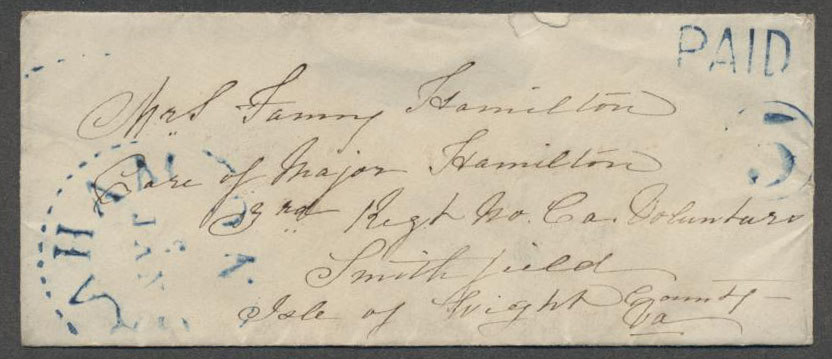 PAID
5
Mrs Fanny Hamilton
Care of Major Hamilton
3rd Regt No. Ca. Volunturs
Smithfield
Isle of Wight County
Va